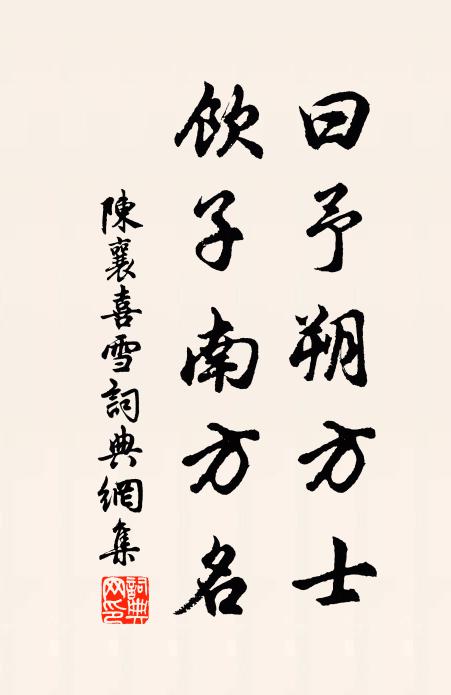 曰予朔方士
飲子南方名
陳襄喜雪詞典網集
詞典網印